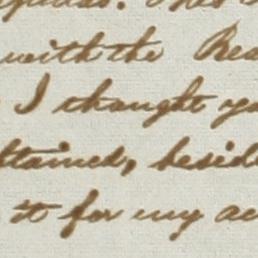 with the
I thought
ttained, besid
it for my ac